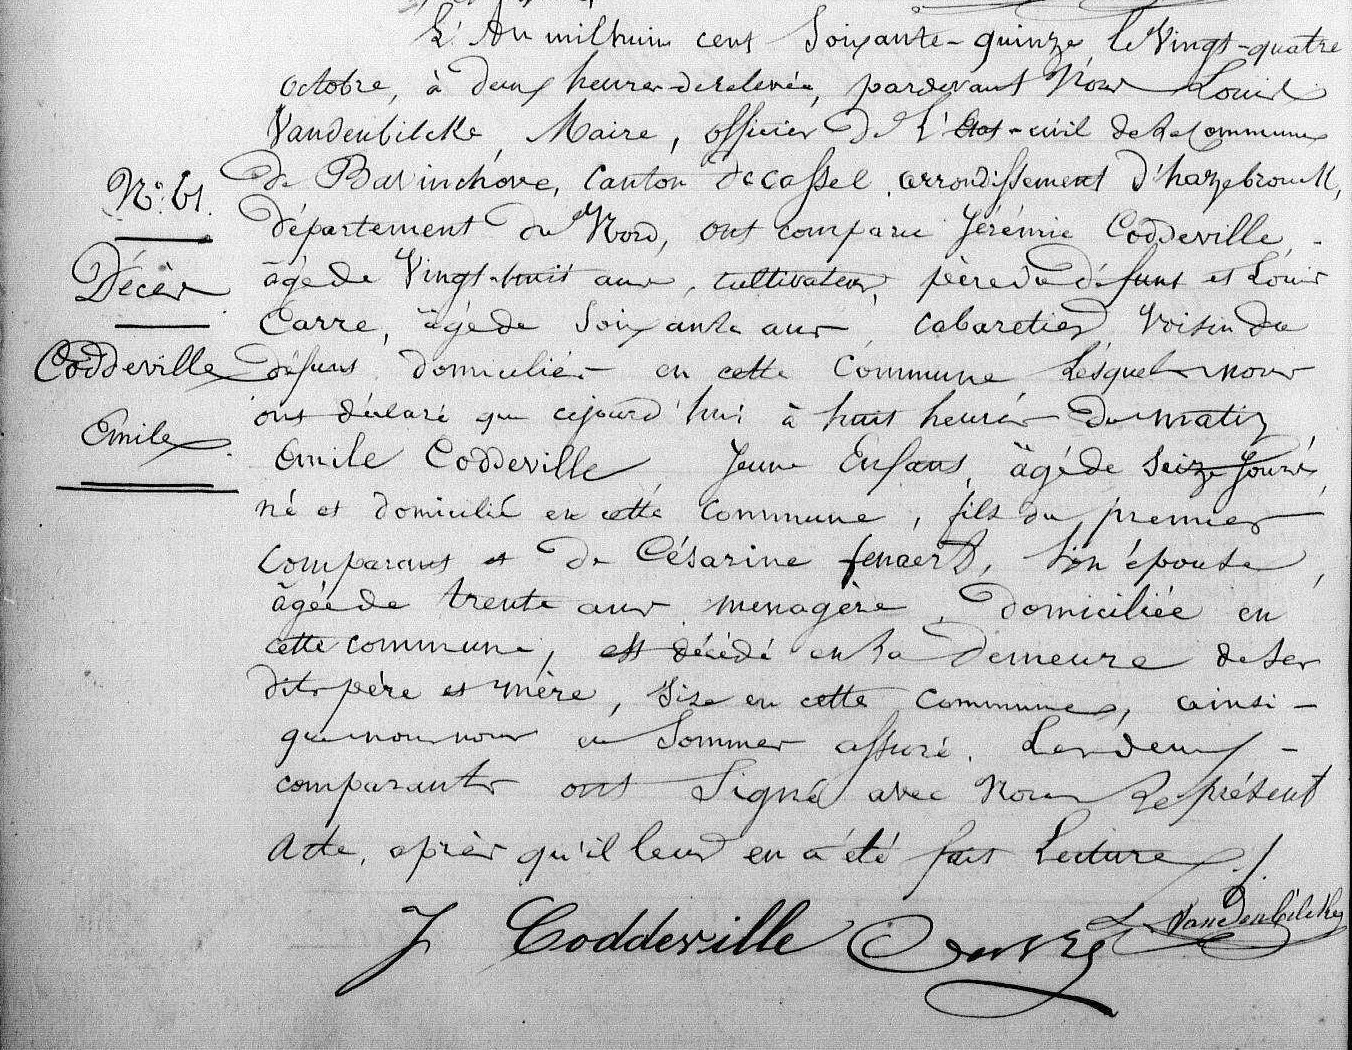 L'An mil huit cent Soixante-quinze le Vingt-quatre
octobre, à deux heures de relevée, pardevant Nous Louis
Vandenbilcke, Maire, officier De L'Etat-civil de la Commune
de Bavinchove, Canton de Cassel, arrondissement d'hazebrouck,
département du Nord, ont comparu Jérémie Coddeville,
âgé de Vingt-huit ans, cultivateur, père du défunt et Louis
Carre, âgé de Soixante ans cabaretier Voisin du
défunt domiciliés en cette Commune Lesquels nous
ont déclaré que cejourd'hui à huit heures du matin
Emile Coddeville, Jeune Enfant, âgé de seize Jours,
né et domicilié en cette commune, fils du premier
Comparant et de Césarine fenaert, Son épouse,
âgée de trente ans ménagère, Domiciliée en
cette commune, est décédé en la Demeure de ses
dits père et mère, Sise en cette Commune, ainsi-
que nous nous en Sommes assuré. Les deux-
comparants ont Signé avec Nous le présent
Acte, après qu'il leur en a été fait Lecture ./.
N° 61.
Décès
Coddeville
Emile.
J Coddeville
L Vandenbilcke